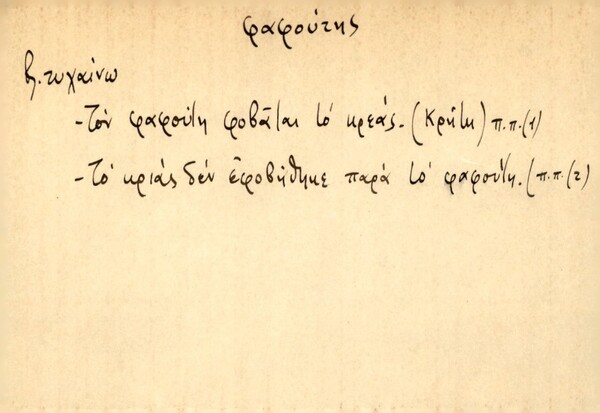 φαφούτης
βλ. τυχαίνω
- Τὸν φαφούτη φοβᾶται τὸ κρεάς. (Κρήτη) π.π. (1)
- Τὸ κριάς δέν ἐφοβήθηκε παρά τὸ φαφούτη. (π.π. (2)